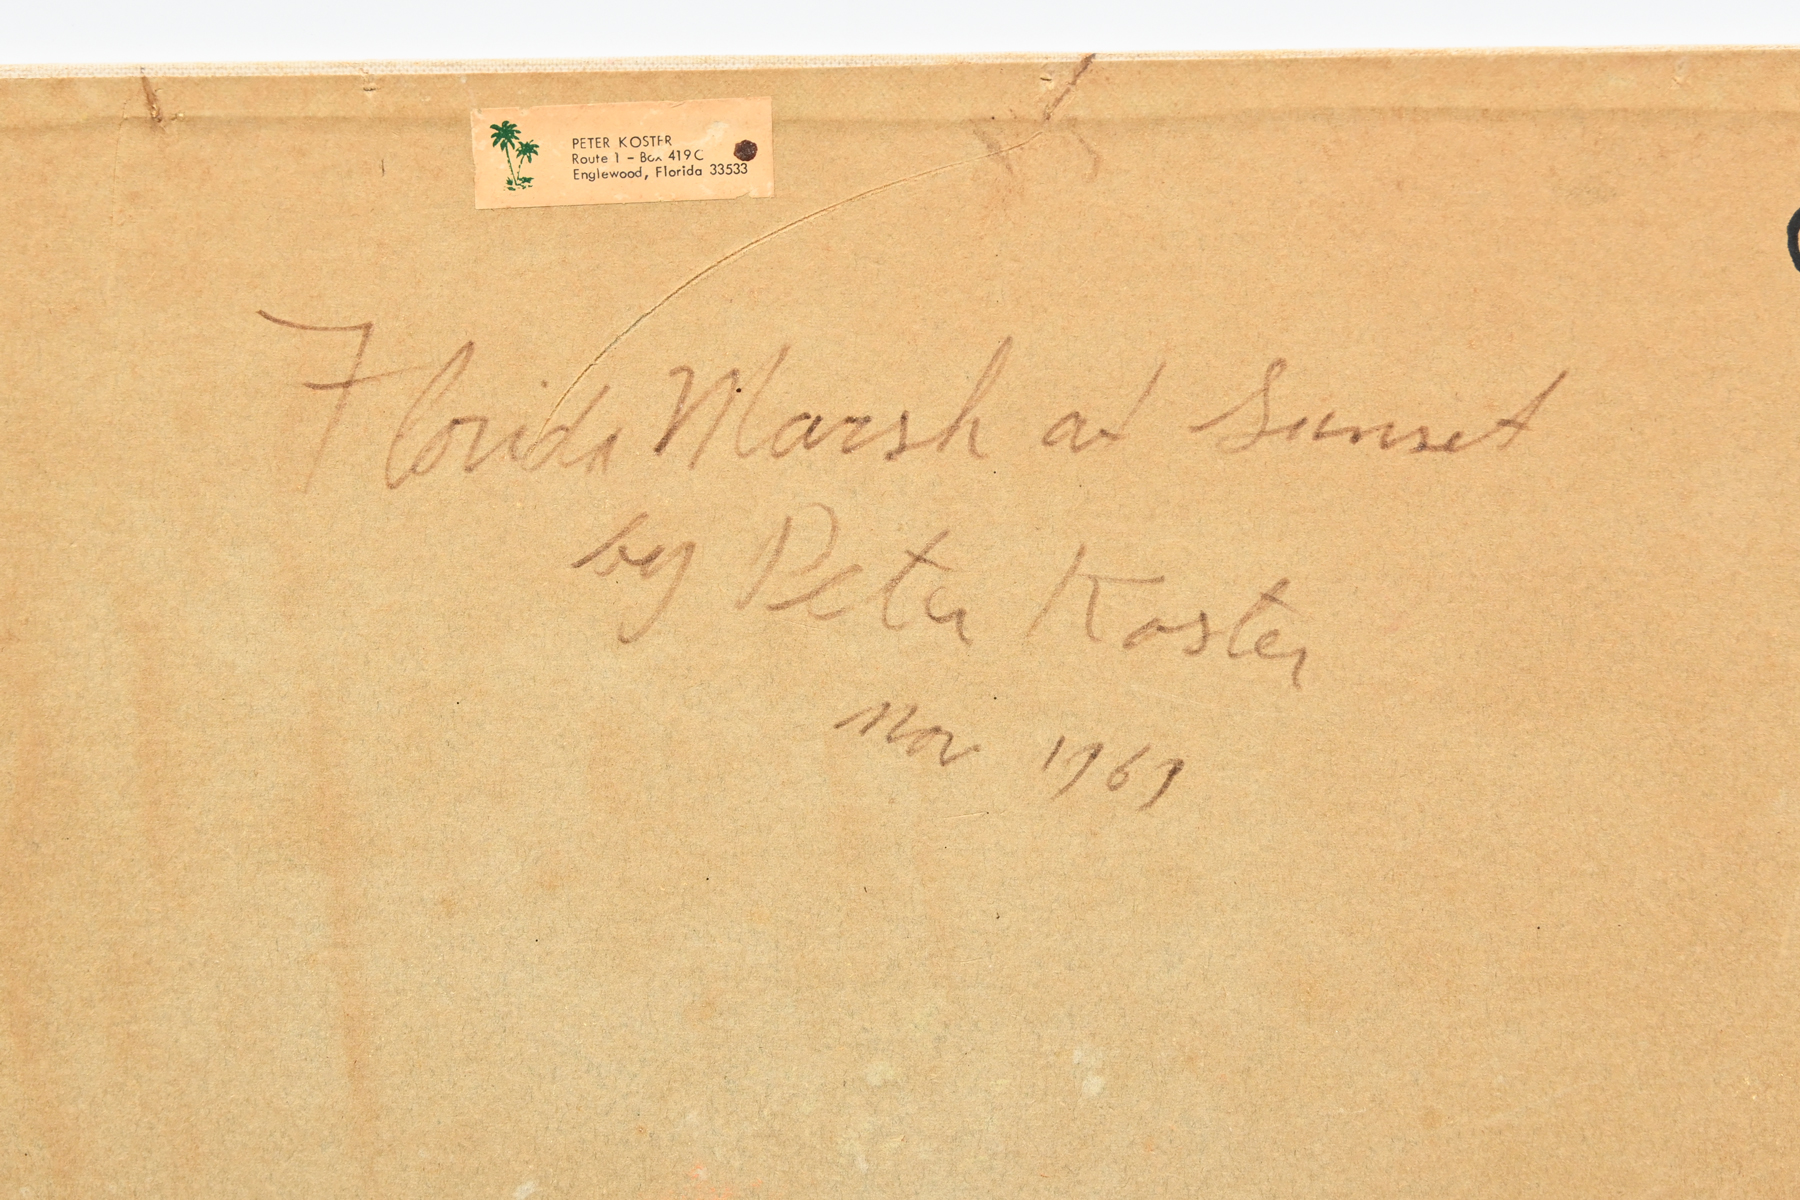 PETER KOSTER
Route 1 - Box 419C
Englewood, Florida 33533
Florida Marsh at Sunset
by Peter Koster
Nov 1969